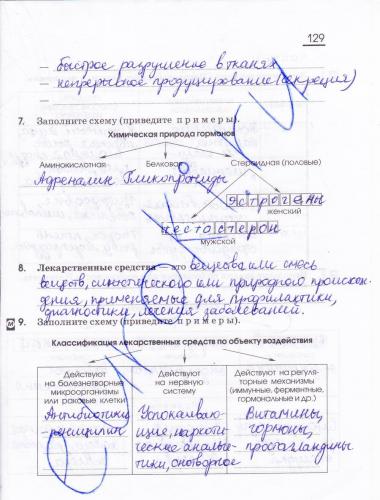 129
— быстрое разрушение в тканях
— непрерывное продуцирование (секреция)
—
7. Заполните схему (приведите примеры).
Химическая природа гормонов
Аминокислотная Белковая Стероидная (половые)
Адреналин Гликопротеиды
Эстрогены
женский
тестостерон
мужской
8. Лекарственные средства — это вещества или смесь
веществ, синтетического или природного происхож-
дения, применяемые для профилактики,
диагностики, лечения заболеваний.
М 9. Заполните схему (приведите примеры).
Классификация лекарственных средств по объекту воздействия
Действуют на болезнетворные микроорганизмы или раковые клетки
Антибиотики
- пенициллин
Действуют на нервную систему
Успокаиваю-
щие, наркоти-
ческие анальге-
тики, снотворное
Действуют на регуля-
торные механизмы
(иммунные, ферментные,
гормональные и др.)
Витамины,
гормоны,
простагландины